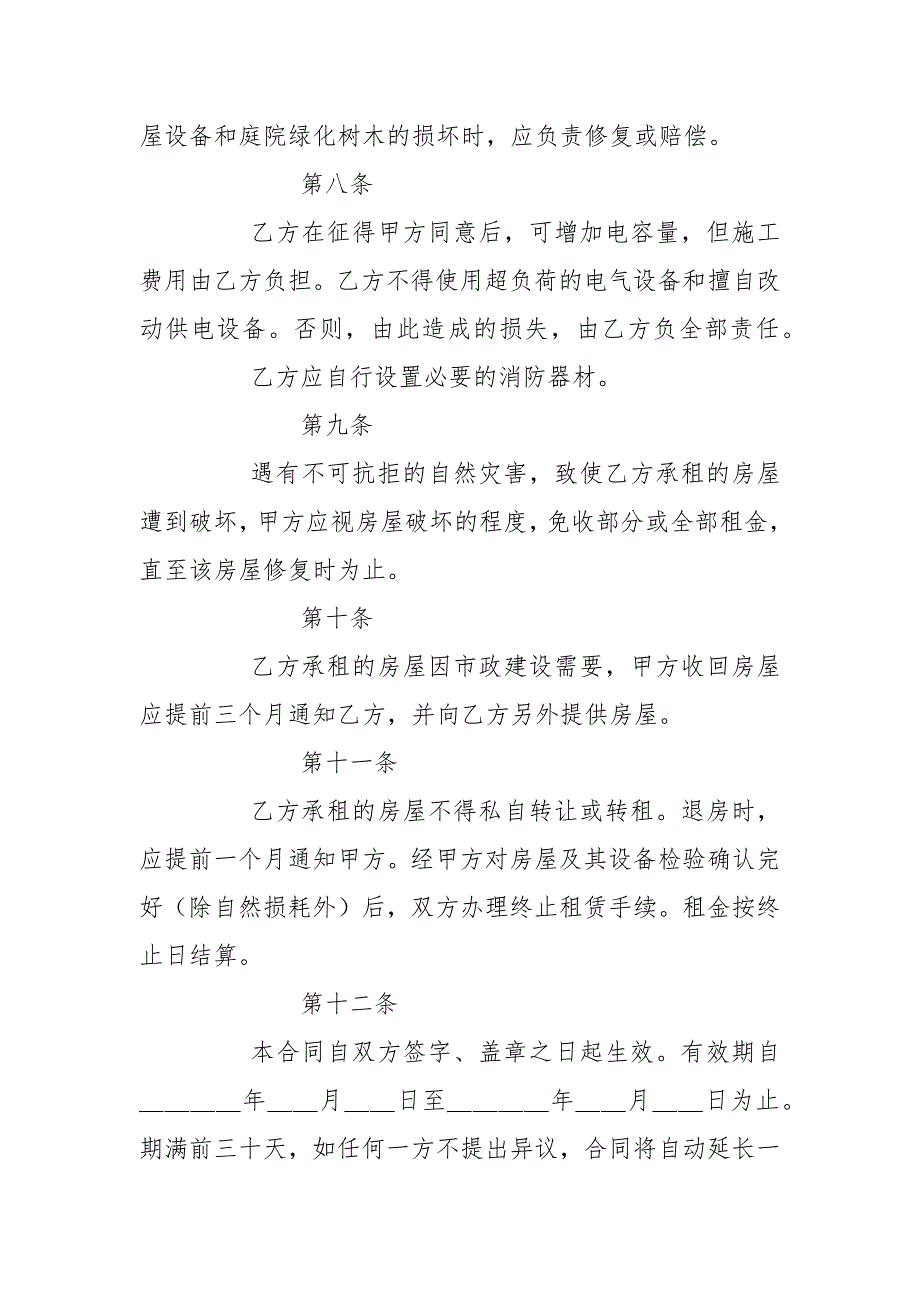 屋设备和庭院绿化树木的损坏时，应负责修复或赔偿。
第八条
乙方在征得甲方同意后，可增加电容量，但施工
费用由乙方负担。乙方不得使用超负荷的电气设备和擅自改
动供电设备。否则，由此造成的损失，由乙方负全部责任。
乙方应自行设置必要的消防器材。
第九条
遇有不可抗拒的自然灾害，致使乙方承租的房屋
遭到破坏，甲方应视房屋破坏的程度，免收部分或全部租金，
直至该房屋修复时为止。
第十条
乙方承租的房屋因市政建设需要，甲方收回房屋
应提前三个月通知乙方，并向乙方另外提供房屋。
第十一条
乙方承租的房屋不得私自转让或转租。退房时，
应提前一个月通知甲方。经甲方对房屋及其设备检验确认完
好（除自然损耗外）后，双方办理终止租赁手续。租金按终
止日结算。
第十二条
本合同自双方签字、盖章之日起生效。有效期自
________年____月____日至________年____月____日为止。
期满前三十天，如任何一方不提出异议，合同将自动延长一